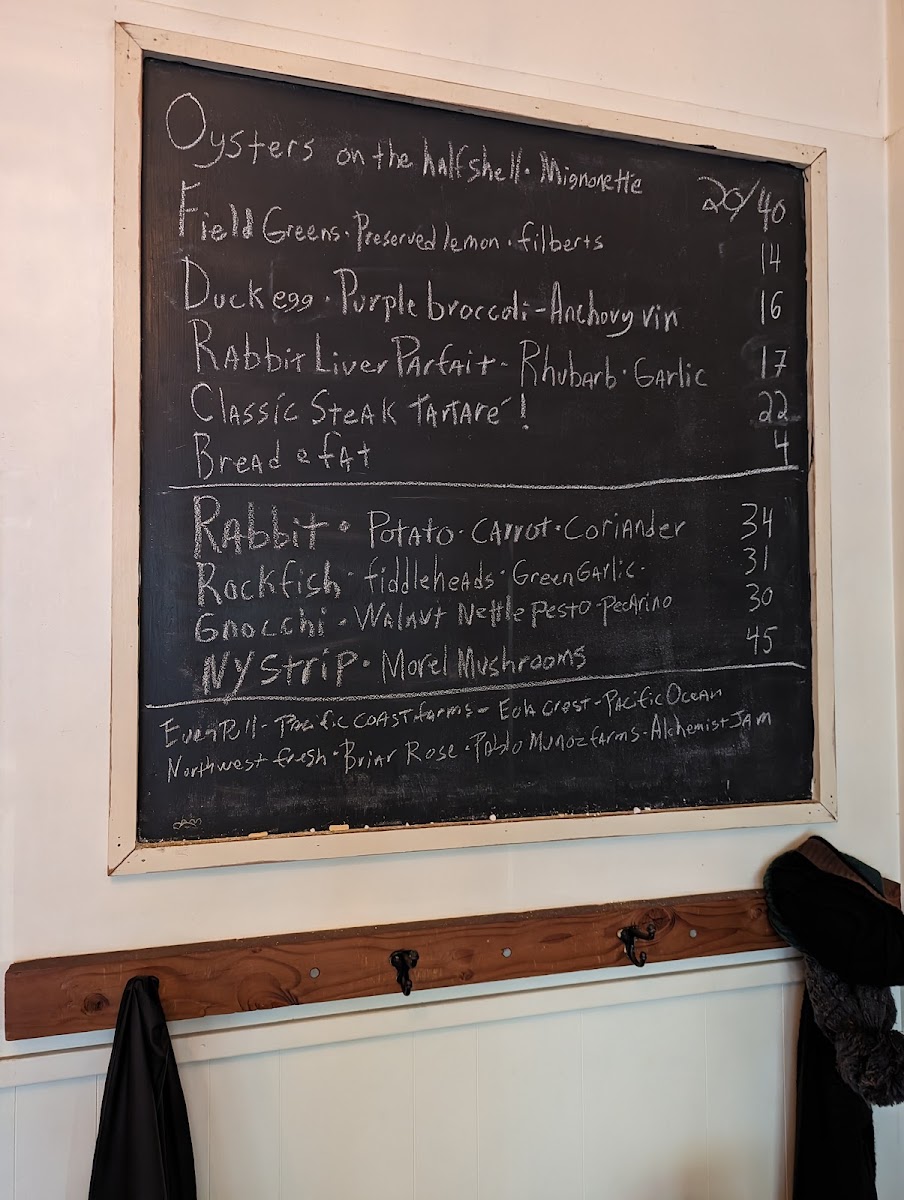 Oysters on the half shell · Mignonette 20/40
Field Greens · Preserved lemon · filberts 14
Duck egg · Purple broccoli - Anchovy vin 16
Rabbit Liver Parfait - Rhubarb · Garlic 17
Classic Steak Tartare! 22
Bread & fat 4
Rabbit · Potato · Carrot · Coriander 34
Rockfish · fiddleheads · Green Garlic · 31
Gnocchi · Walnut Nettle pesto - pecarino 30
NY Strip · Morel Mushrooms 45
Even Pull - Pacific coast farms - Eola crest - Pacific Ocean
Northwest fresh · Briar Rose · Pablo Munoz farms - Alchemist Jam